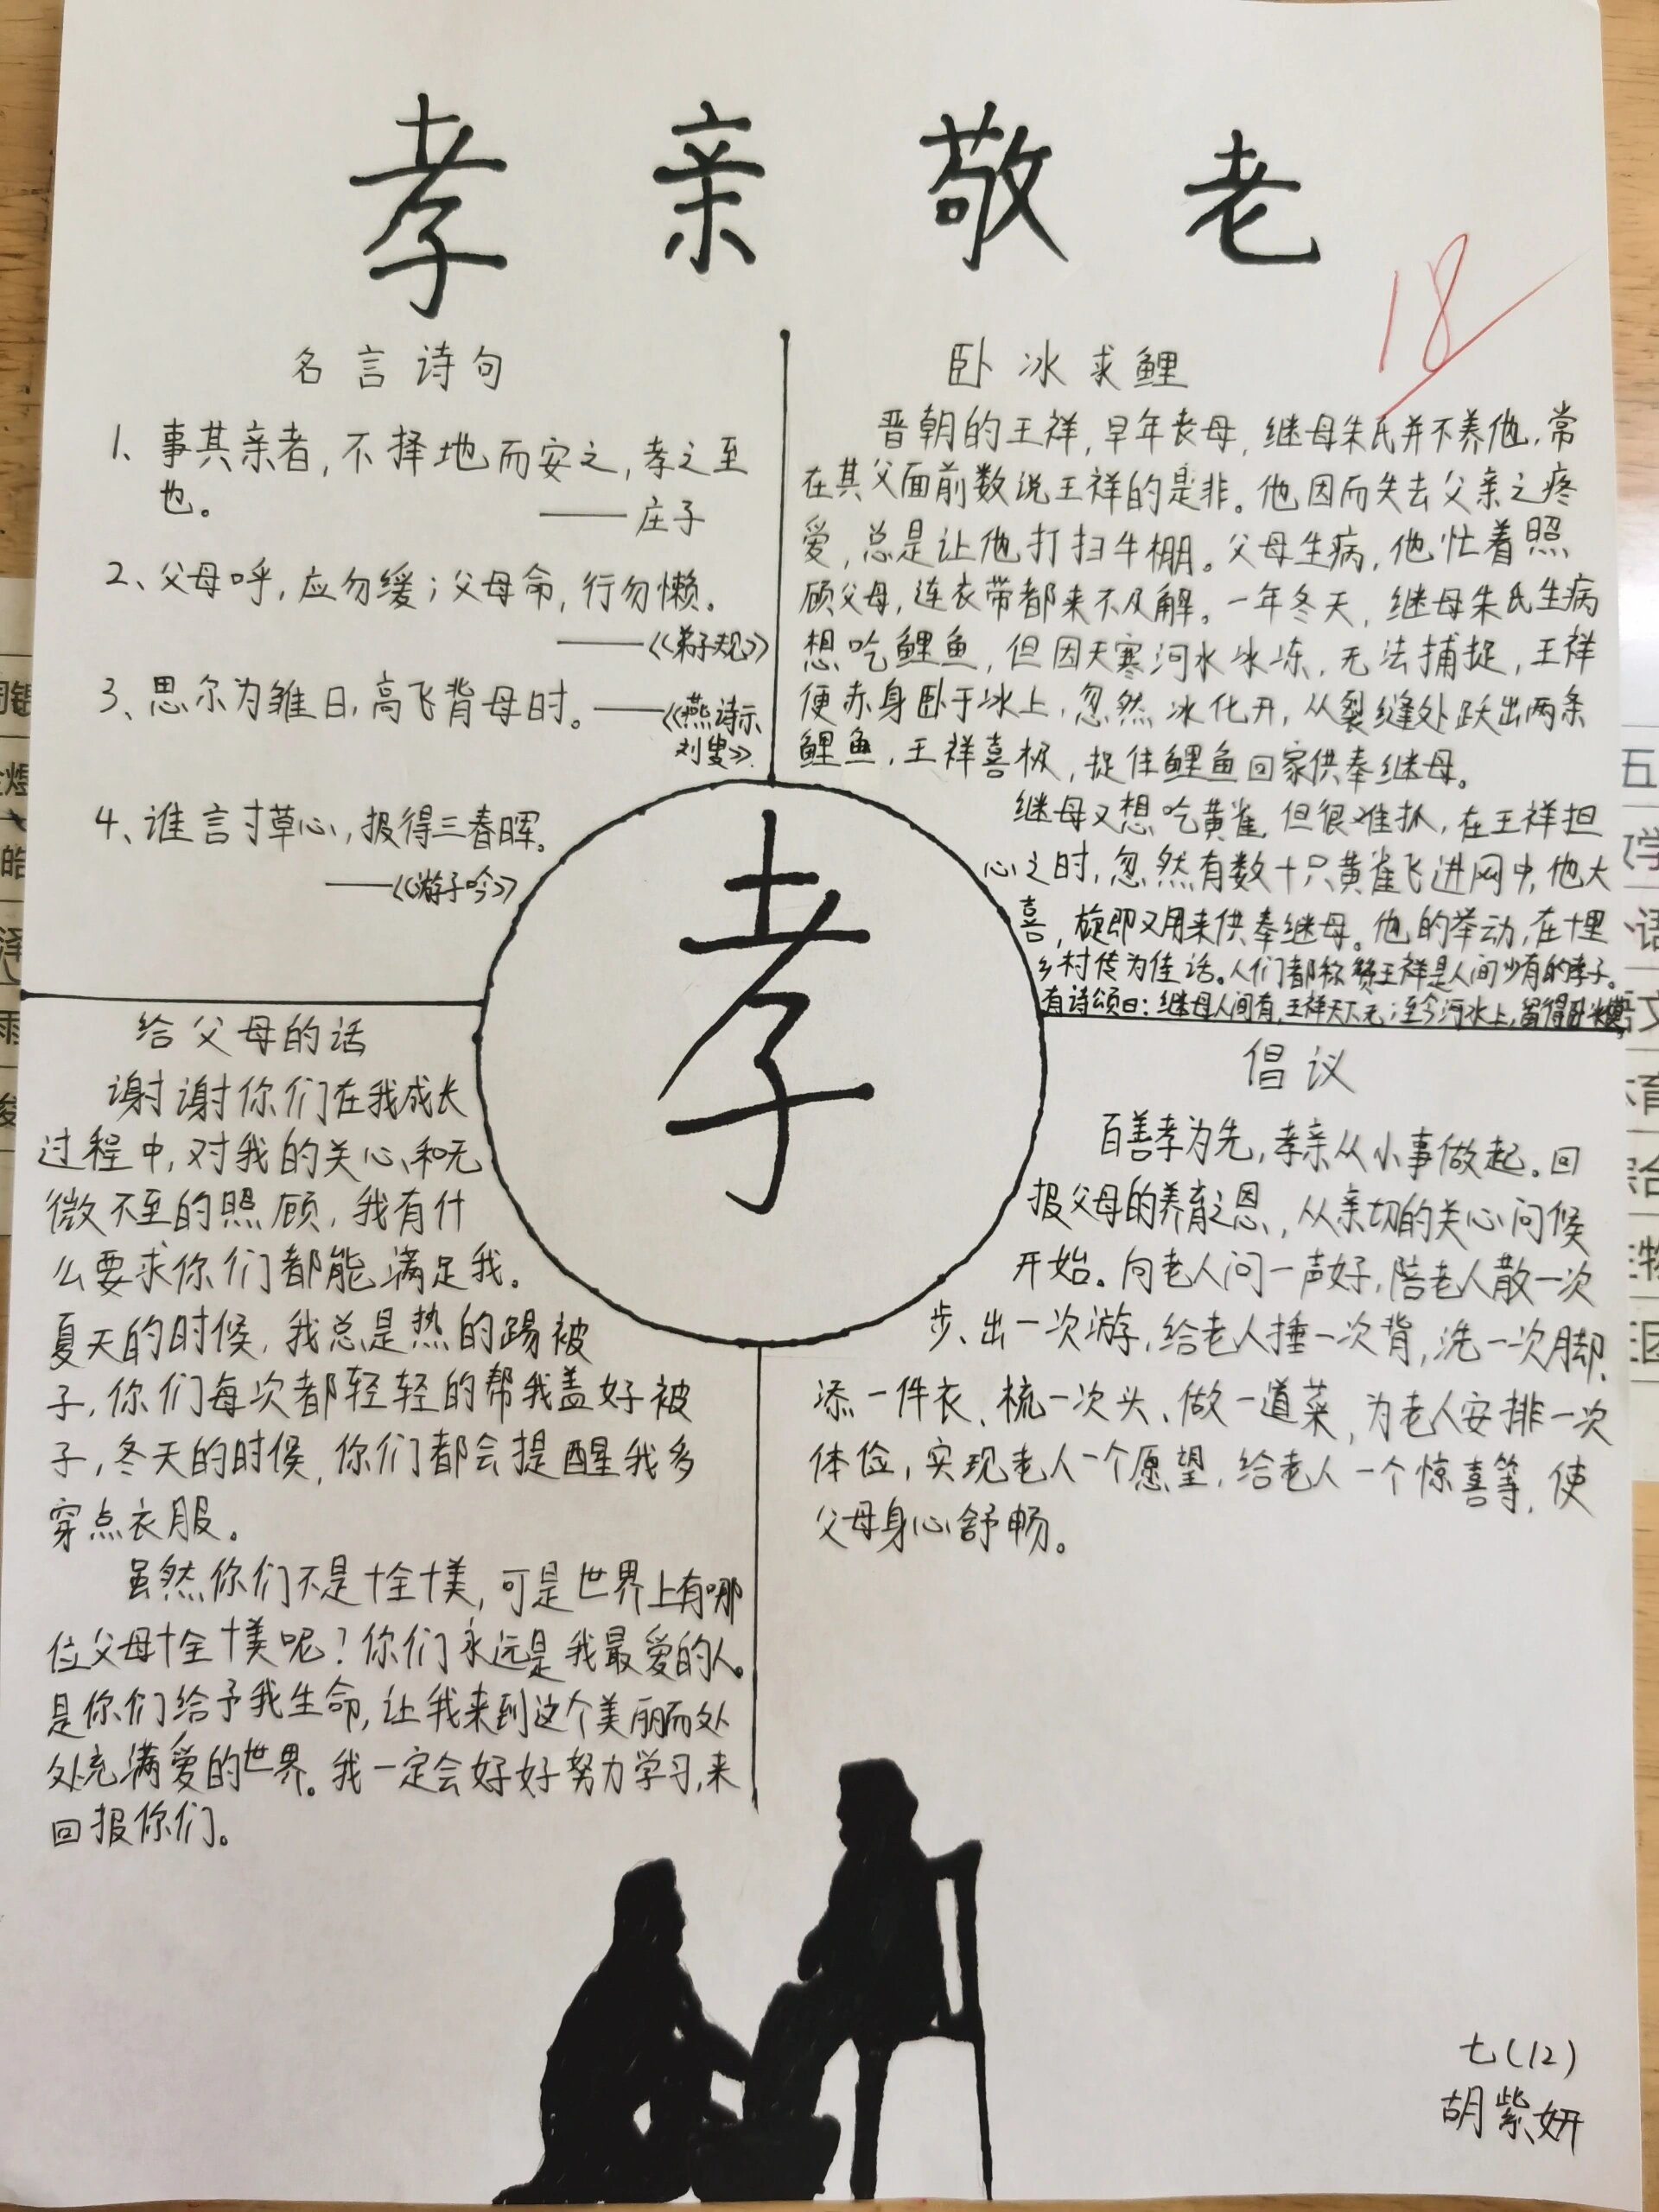 孝亲敬老
18
名言诗句
1、事其亲者，不择地而安之，孝之至
也。
——庄子
2、父母呼，应勿缓；父母命，行勿懒。
——《弟子规》
3、思尔为雏日，高飞背母时。——《燕诗示
刘叟》
4、谁言寸草心，报得三春晖。
——《游子吟》
卧冰求鲤
晋朝的王祥，早年丧母，继母朱氏并不养他，常
在其父面前数说王祥的是非。他因而失去父亲之疼
爱，总是让他打扫牛棚。父母生病，他忙着照
顾父母，连衣带都来不及解。一年冬天，继母朱氏生病
想吃鲤鱼，但因天寒河水冰冻，无法捕捉，王祥
便赤身卧于冰上，忽然冰化开，从裂缝处跃出两条
鲤鱼，王祥喜极，捉住鲤鱼回家供奉继母。
继母又想吃黄雀，但很难抓，在王祥担
心之时，忽然有数十只黄雀飞进网中，他大
喜，旋即又用来供奉继母。他的举动，在十里
乡村传为佳话。人们都称赞王祥是人间少有的孝子。
有诗颂曰：继母人间有，王祥天下无；至今河水上，留得卧冰模。
孝
给父母的话
谢谢你们在我成长
过程中，对我的关心、和无
微不至的照顾，我有什
么要求你们都能满足我。
夏天的时候，我总是热的踢被
子，你们每次都轻轻的帮我盖好被
子，冬天的时候，你们都会提醒我多
穿点衣服。
虽然你们不是十全十美，可是世界上有哪
位父母十全十美呢？你们永远是我最爱的人。
是你们给予我生命，让我来到这个美丽而处
处充满爱的世界。我一定会好好努力学习，来
回报你们。
倡议
百善孝为先，孝亲从小事做起。回
报父母的养育之恩，从亲切的关心问候
开始。向老人问一声好，陪老人散一次
步、出一次游，给老人捶一次背，洗一次脚、
添一件衣、梳一次头、做一道菜，为老人安排一次
体检，实现老人一个愿望，给老人一个惊喜等，使
父母身心舒畅。
七(12)
胡紫妍